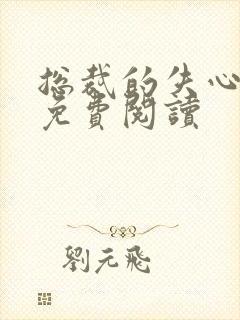 总裁的失心
免費閱讀
劉元飛